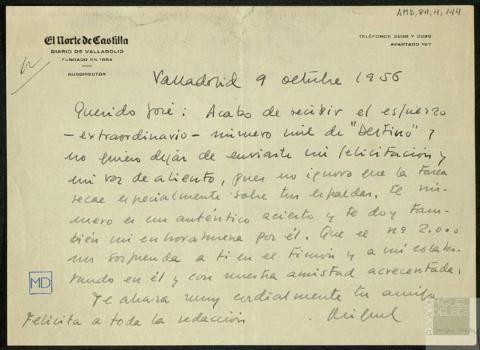 AMD, 84, 4, 144
El Norte de Castilla
DIARIO DE VALLADOLID
FUNDADO EN 1854
SUBDIRECTOR
TELÉFONOS 2238 Y 2239
APARTADO 127
Valladolid 9 octubre 1956
Querido José: Acabo de recibir el esfuerzo
-extraordinario- número mil de "Destino" y
no quiero dejar de enviarte mi felicitación y
mi voz de aliento, pues no ignoro que la tarea
recae especialmente sobre tus espaldas. El nú-
mero es un auténtico acierto y te doy tam-
bién mi enhorabuena por él. Que el nº 2.000
nos sorprenda a ti en el timón y a mí colabo-
rando en él y con nuestra amistad acrecentada.
MD
Te abraza muy cordialmente tu amigo
Felicita a toda la redacción
Miguel
MIGUEL
DELIBES